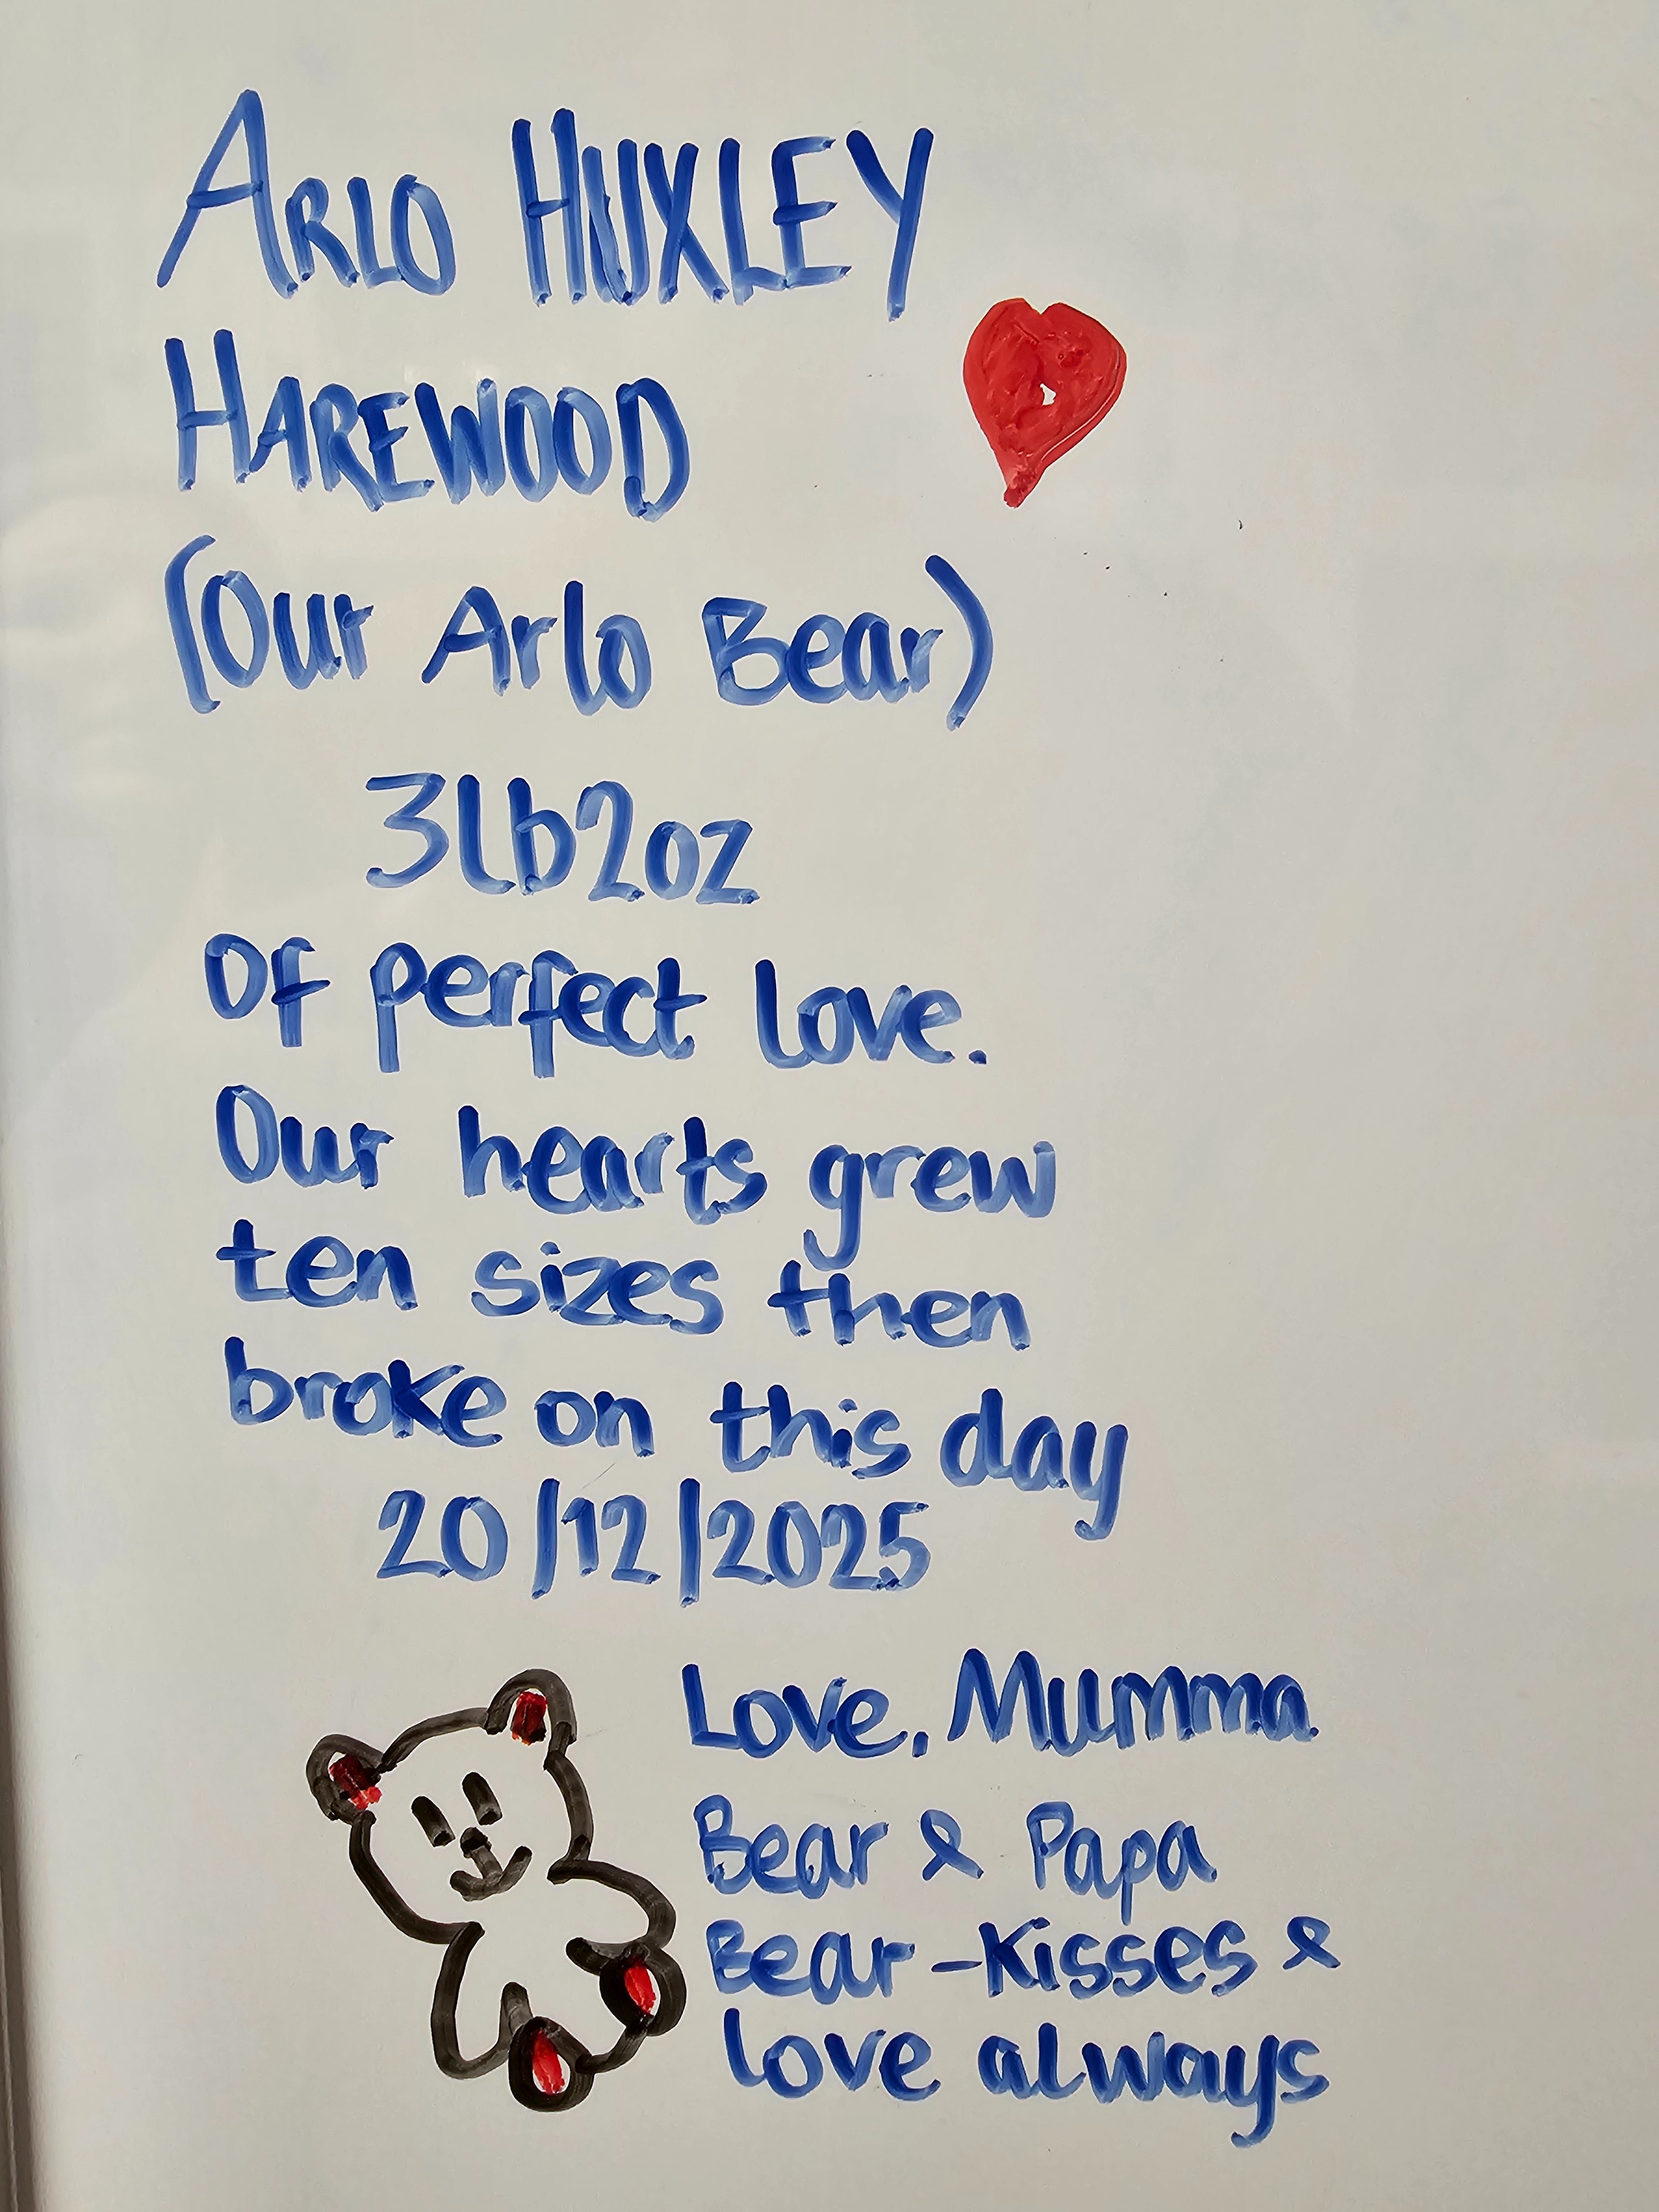 ARLO HUXLEY
HAREWOOD
(Our Arlo Bear)
3lb2oz
Of perfect love.
Our hearts grew
ten sizes then
broke on this day
20/12/2025
Love, Mumma
Bear & Papa
Bear - Kisses &
love always